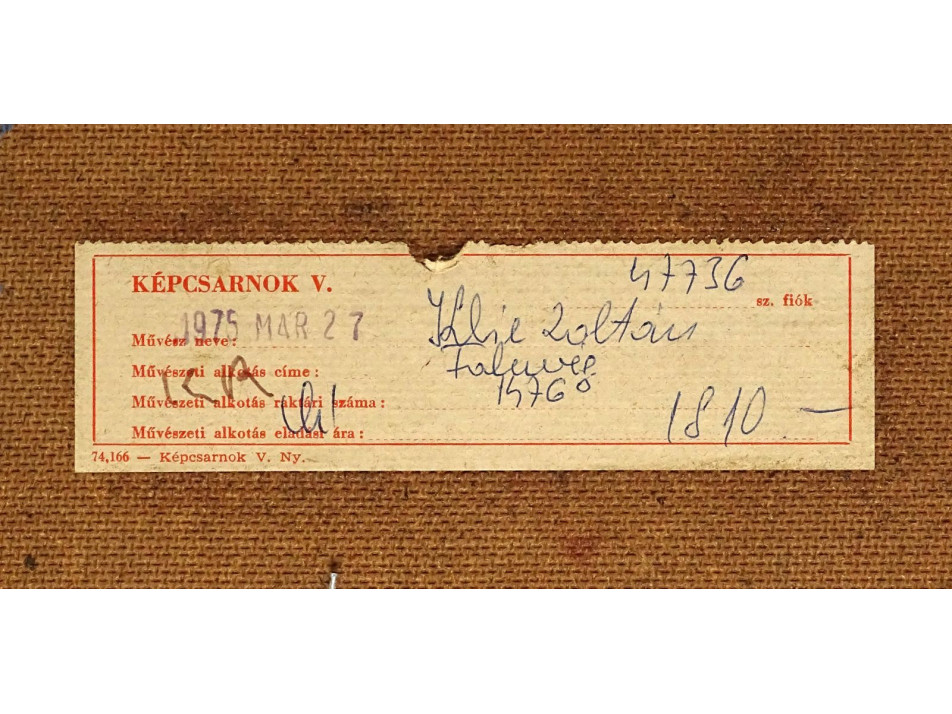 47736
KÉPCSARNOK V.
sz. fiók
1975 MAR 27
Művész neve: Klie Zoltán
Művészeti alkotás címe:
Művészeti alkotás raktári száma:
Művészeti alkotás eladási ára: 1810 —
74,166 — Képcsarnok V. Ny.